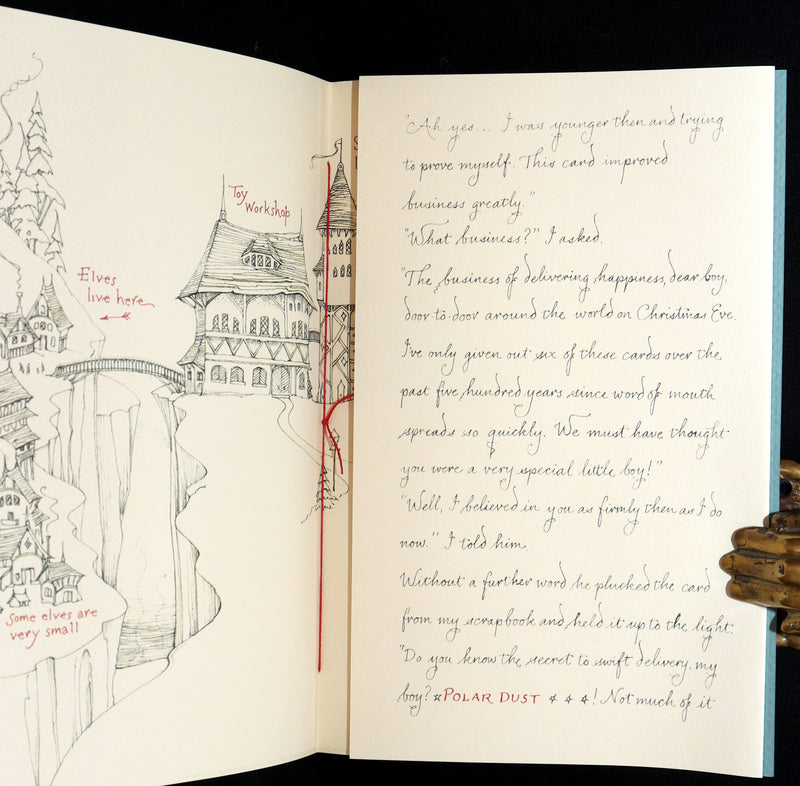 Toy
Workshop
Elves
live here
Some elves are
very small
"Ah yes... I was younger then and trying
to prove myself. This card improved
business greatly."
"What business?" I asked.
"The business of delivering happiness, dear boy,
door-to-door around the world on Christmas Eve.
I've only given out six of these cards over the
past five hundred years since word of mouth
spreads so quickly. We must have thought
you were a very special little boy!"
"Well, I believed in you as firmly then as I do
now." I told him.
Without a further word he plucked the card
from my scrapbook and held it up to the light.
"Do you know the secret to swift delivery, my
boy? POLAR DUST ! Not much of it